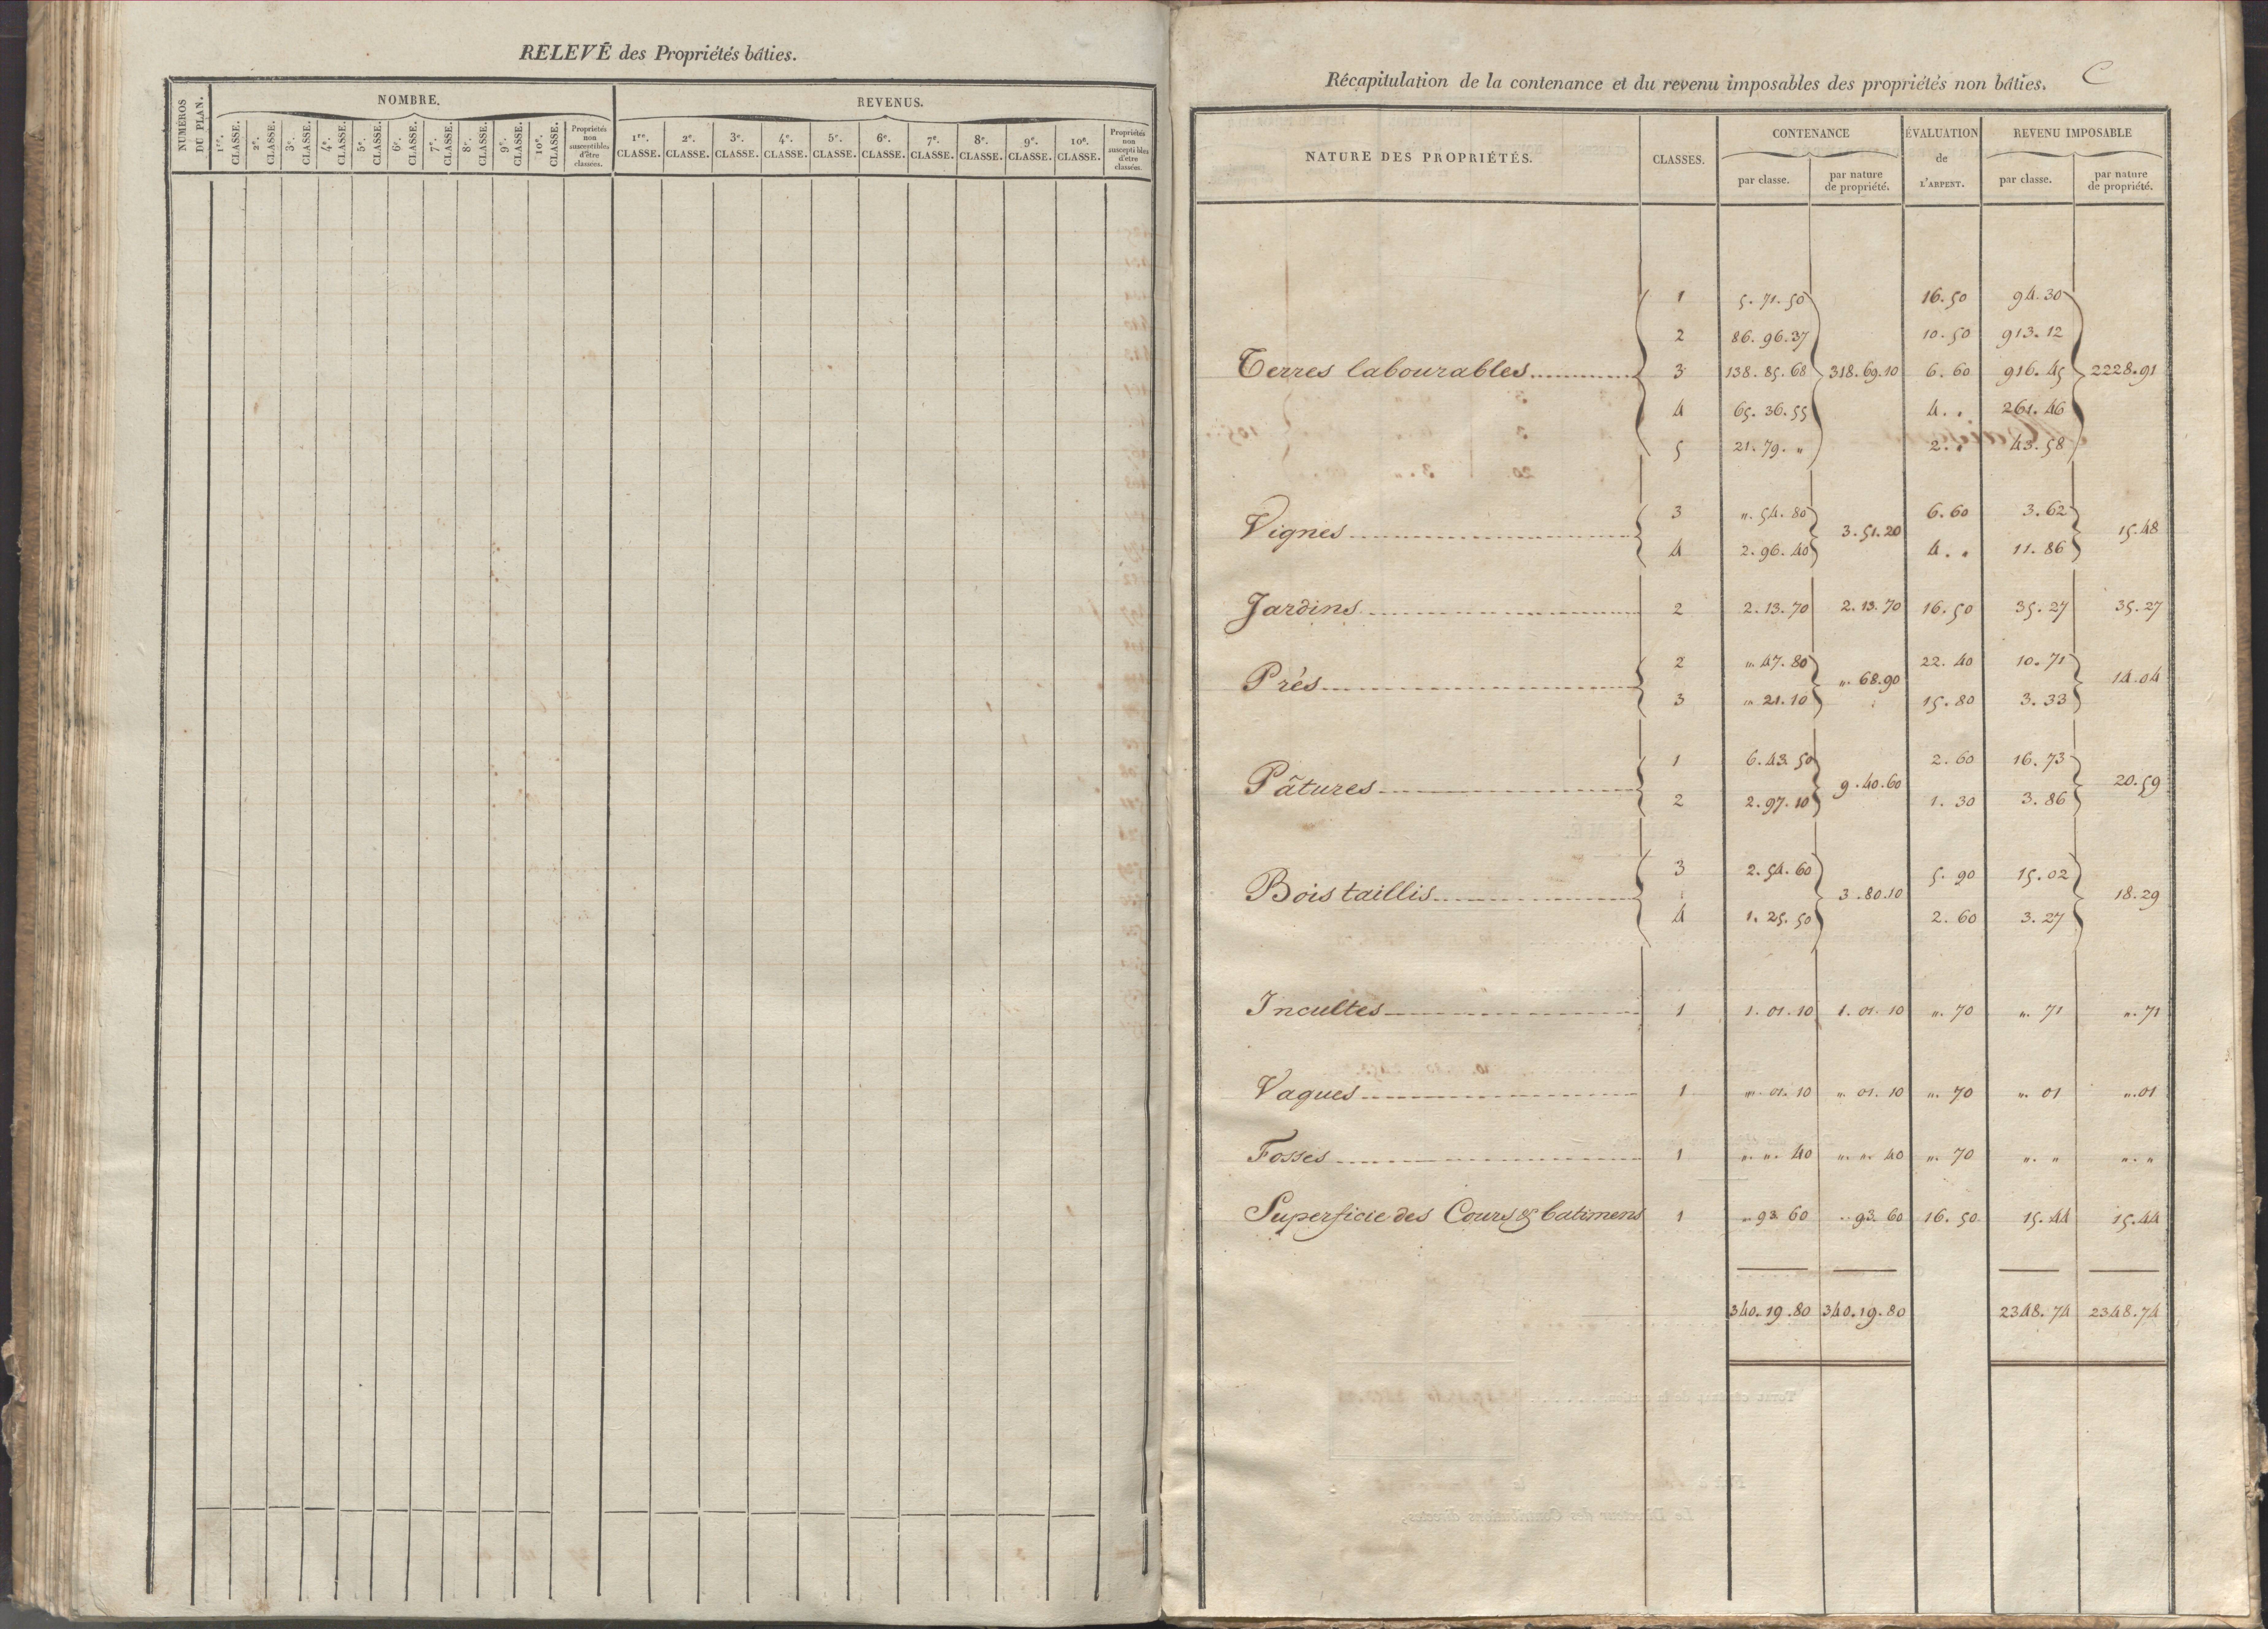 RELEVÉ des Propriétés bâties.
NUMÉROS DU PLAN.
NOMBRE.
REVENUS.
1re. CLASSE. 2e. CLASSE. 3e. CLASSE. 4e. CLASSE. 5e. CLASSE. 6e. CLASSE. 7e. CLASSE. 8e. CLASSE. 9e. CLASSE. 10e. CLASSE. Propriétés non susceptibles d'être classées.
1re. CLASSE. 2e. CLASSE. 3e. CLASSE. 4e. CLASSE. 5e. CLASSE. 6e. CLASSE. 7e. CLASSE. 8e. CLASSE. 9e. CLASSE. 10e. CLASSE. Propriétés non susceptibles d'être classées.
Récapitulation de la contenance et du revenu imposables des propriétés non bâties. C
NATURE DES PROPRIÉTÉS. CLASSES. CONTENANCE ÉVALUATION de L'ARPENT. REVENU IMPOSABLE
par classe. par nature de propriété. par classe. par nature de propriété.
1 5. 71. 50 16. 50 94. 30
2 86. 96. 37 10. 50 913. 12
Terres labourables 3 138. 85. 68 318. 69. 10 6. 60 916. 45 2228. 91
4 65. 36. 55 4. " 261. 46
5 21. 79. " 2. " 43. 58
3 ". 54. 80 6. 60 3. 62
Vignes 3. 51. 20 15. 48
4 2. 96. 40 4. " 11. 86
Jardins 2 2. 13. 70 2. 13. 70 16. 50 35. 27 35. 27
2 ". 47. 80 22. 40 10. 71
Prés ". 68. 90 14. 04
3 ". 21. 10 15. 80 3. 33
1 6. 43. 50 2. 60 16. 73
Pâtures 9. 40. 60 20. 59
2 2. 97. 10 1. 30 3. 86
3 2. 54. 60 5. 90 15. 02
Bois taillis 3. 80. 10 18. 29
4 1. 25. 50 2. 60 3. 27
Incultes 1 1. 01. 10 1. 01. 10 ". 70 ". 71 ". 71
Vagues 1 ". 01. 10 ". 01. 10 ". 70 ". 01 ". 01
Fossés 1 ". ". 40 ". ". 40 ". 70 ". " ". "
Superficie des Cours & batimens 1 ". 93. 60 ". 93. 60 16. 50 15. 44 15. 44
340. 19. 80 340. 19. 80 2348. 74 2348. 74